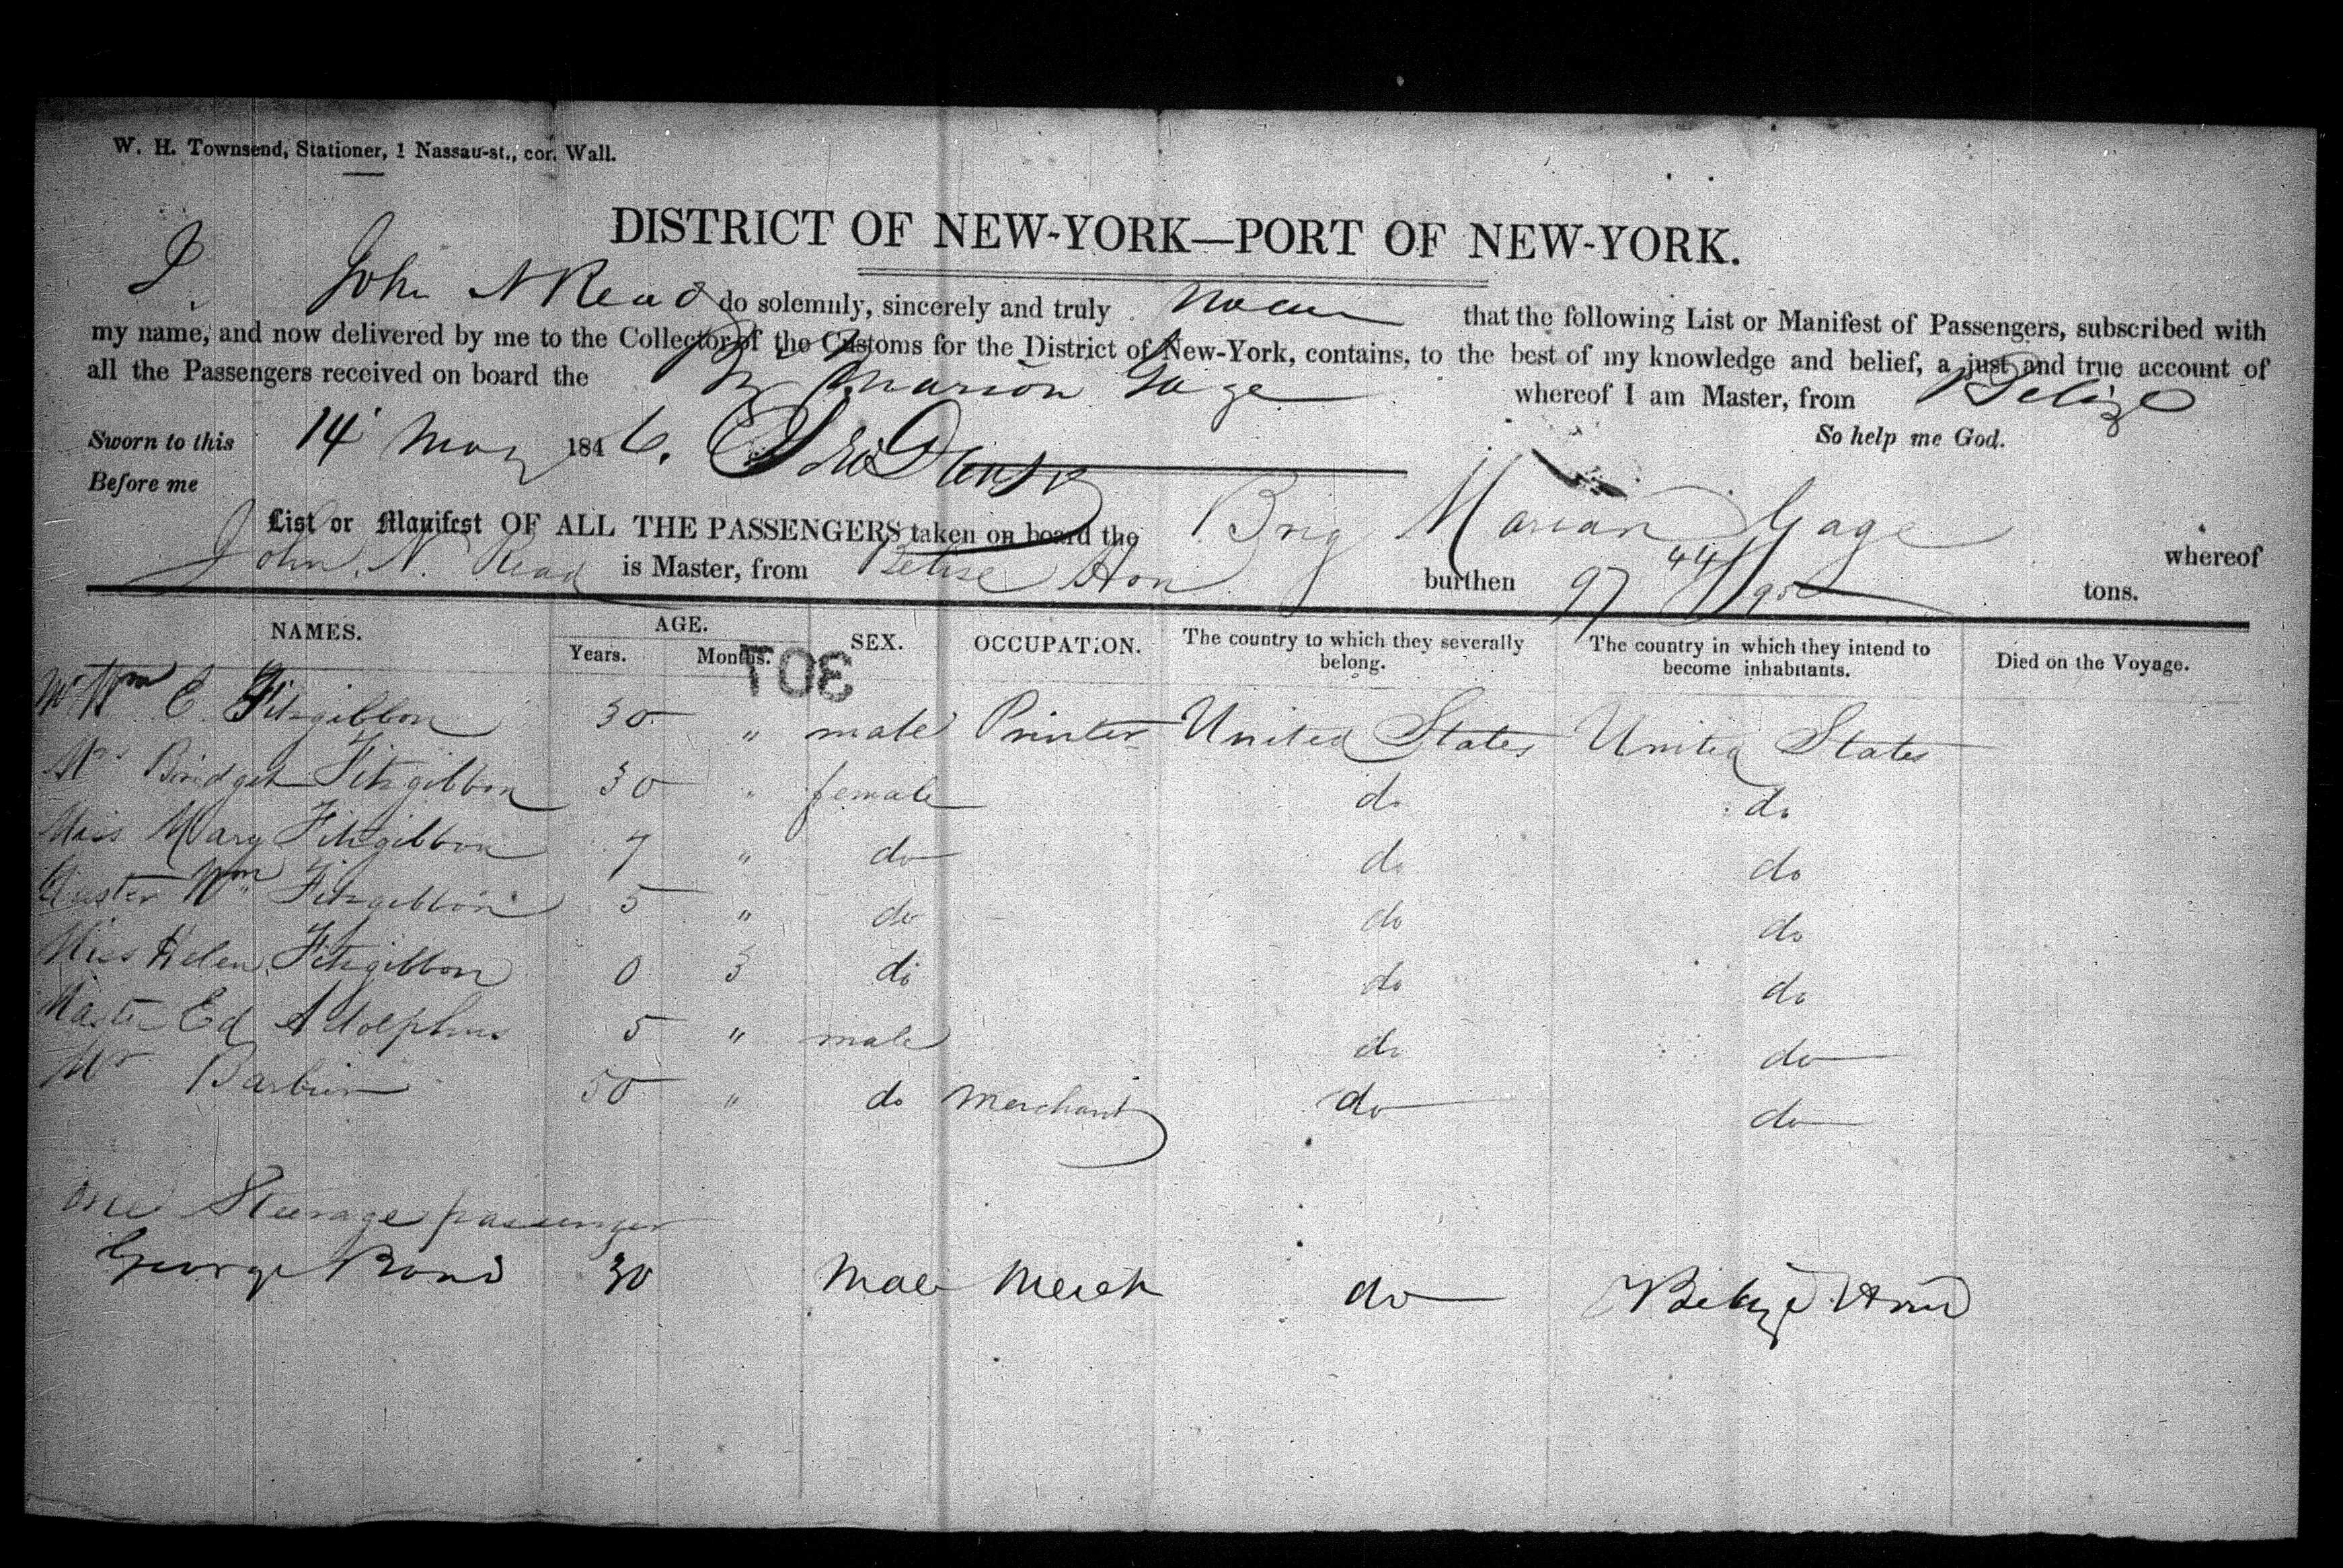 W. H. Townsend, Stationer, 1 Nassau-st., cor. Wall.
DISTRICT OF NEW-YORK—PORT OF NEW-YORK.
I, John N Read do solemnly, sincerely and truly that the following List or Manifest of Passengers, subscribed with
my name, and now delivered by me to the Collector of the Customs for the District of New-York, contains, to the best of my knowledge and belief, a just and true account of
all the Passengers received on board the Br Marion Gage whereof I am Master, from Belize
Sworn to this 14 May 1846. So help me God.
Before me
List or Manifest OF ALL THE PASSENGERS taken on board the Brig Marian Gage whereof
John. N. Read is Master, from Belise Hon burthen 97 44/95 tons.
NAMES. AGE. SEX. OCCUPATION. The country to which they severally belong. The country in which they intend to become inhabitants. Died on the Voyage.
Years. Months.
301
Mr Wm E. Fitzgibbon 30 " male Printer United States United States
Mrs Bridget Fitzgibbon 30 " female do do
Miss Mary Fitzgibbon 7 " do do do
Master Wm Fitzgibbon 5 " do do do
Miss Helen Fitzgibbon 0 3 do do do
Master Ed Adolphus 5 " male do do
Mr 50 " do Merchant do do
One Steerage passenger
George Bond 30 Male Merch do Belize Hond